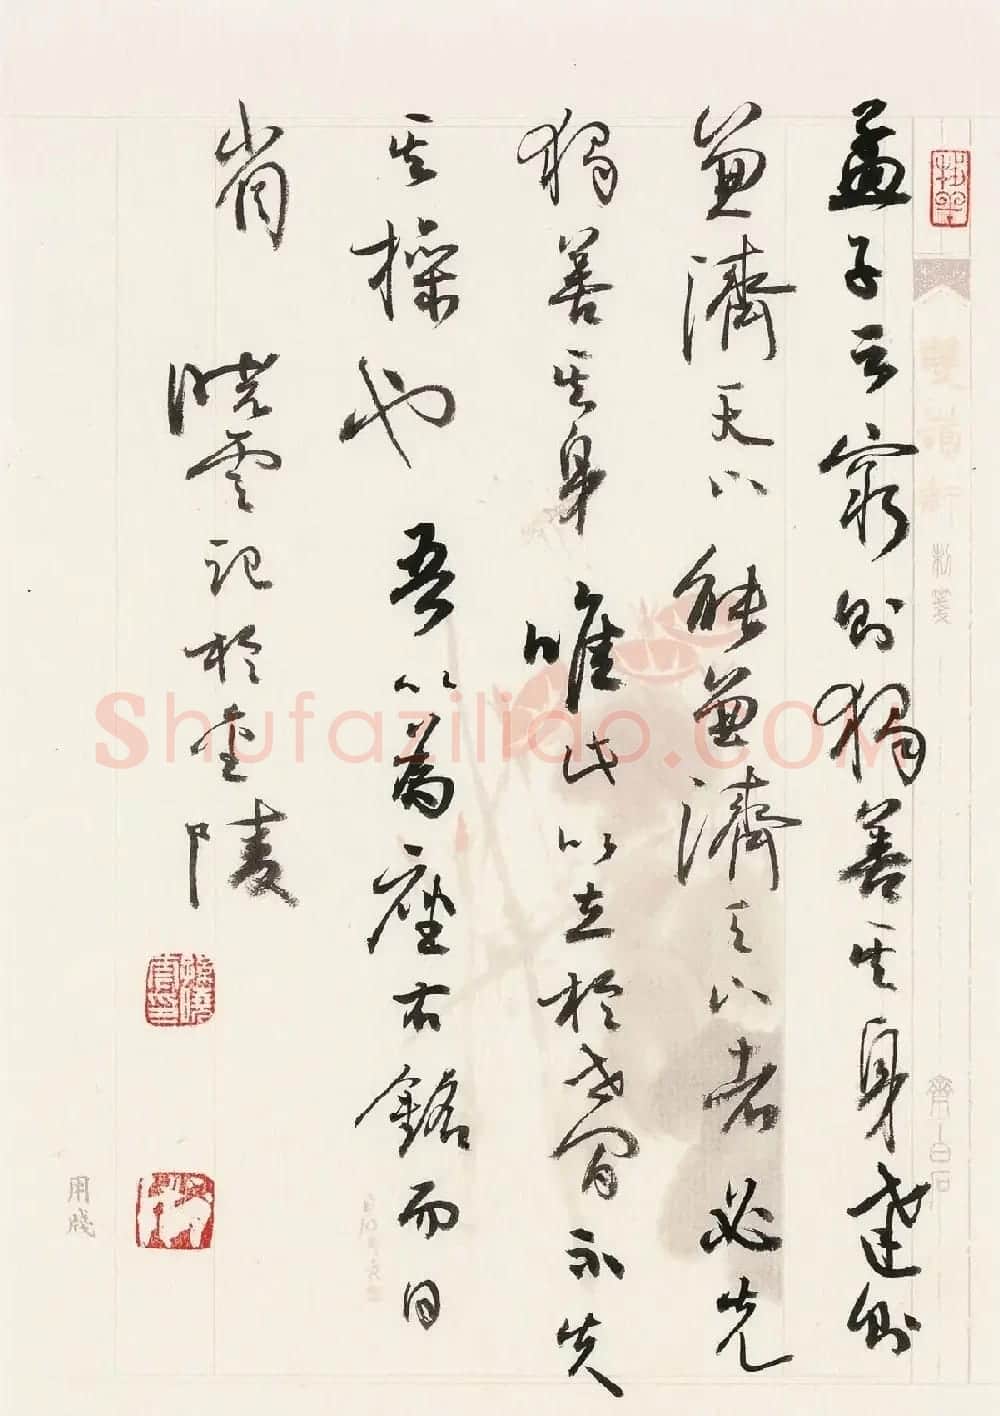 孟子云窮則獨善其身達則
兼濟天下能兼濟天下者必先
獨善其身唯此以立於世間不失
其操也吾以為座右銘而日
省
曉雲記於金陵
雙
製箋
齊白石
用箋
Shufaziliao.COM